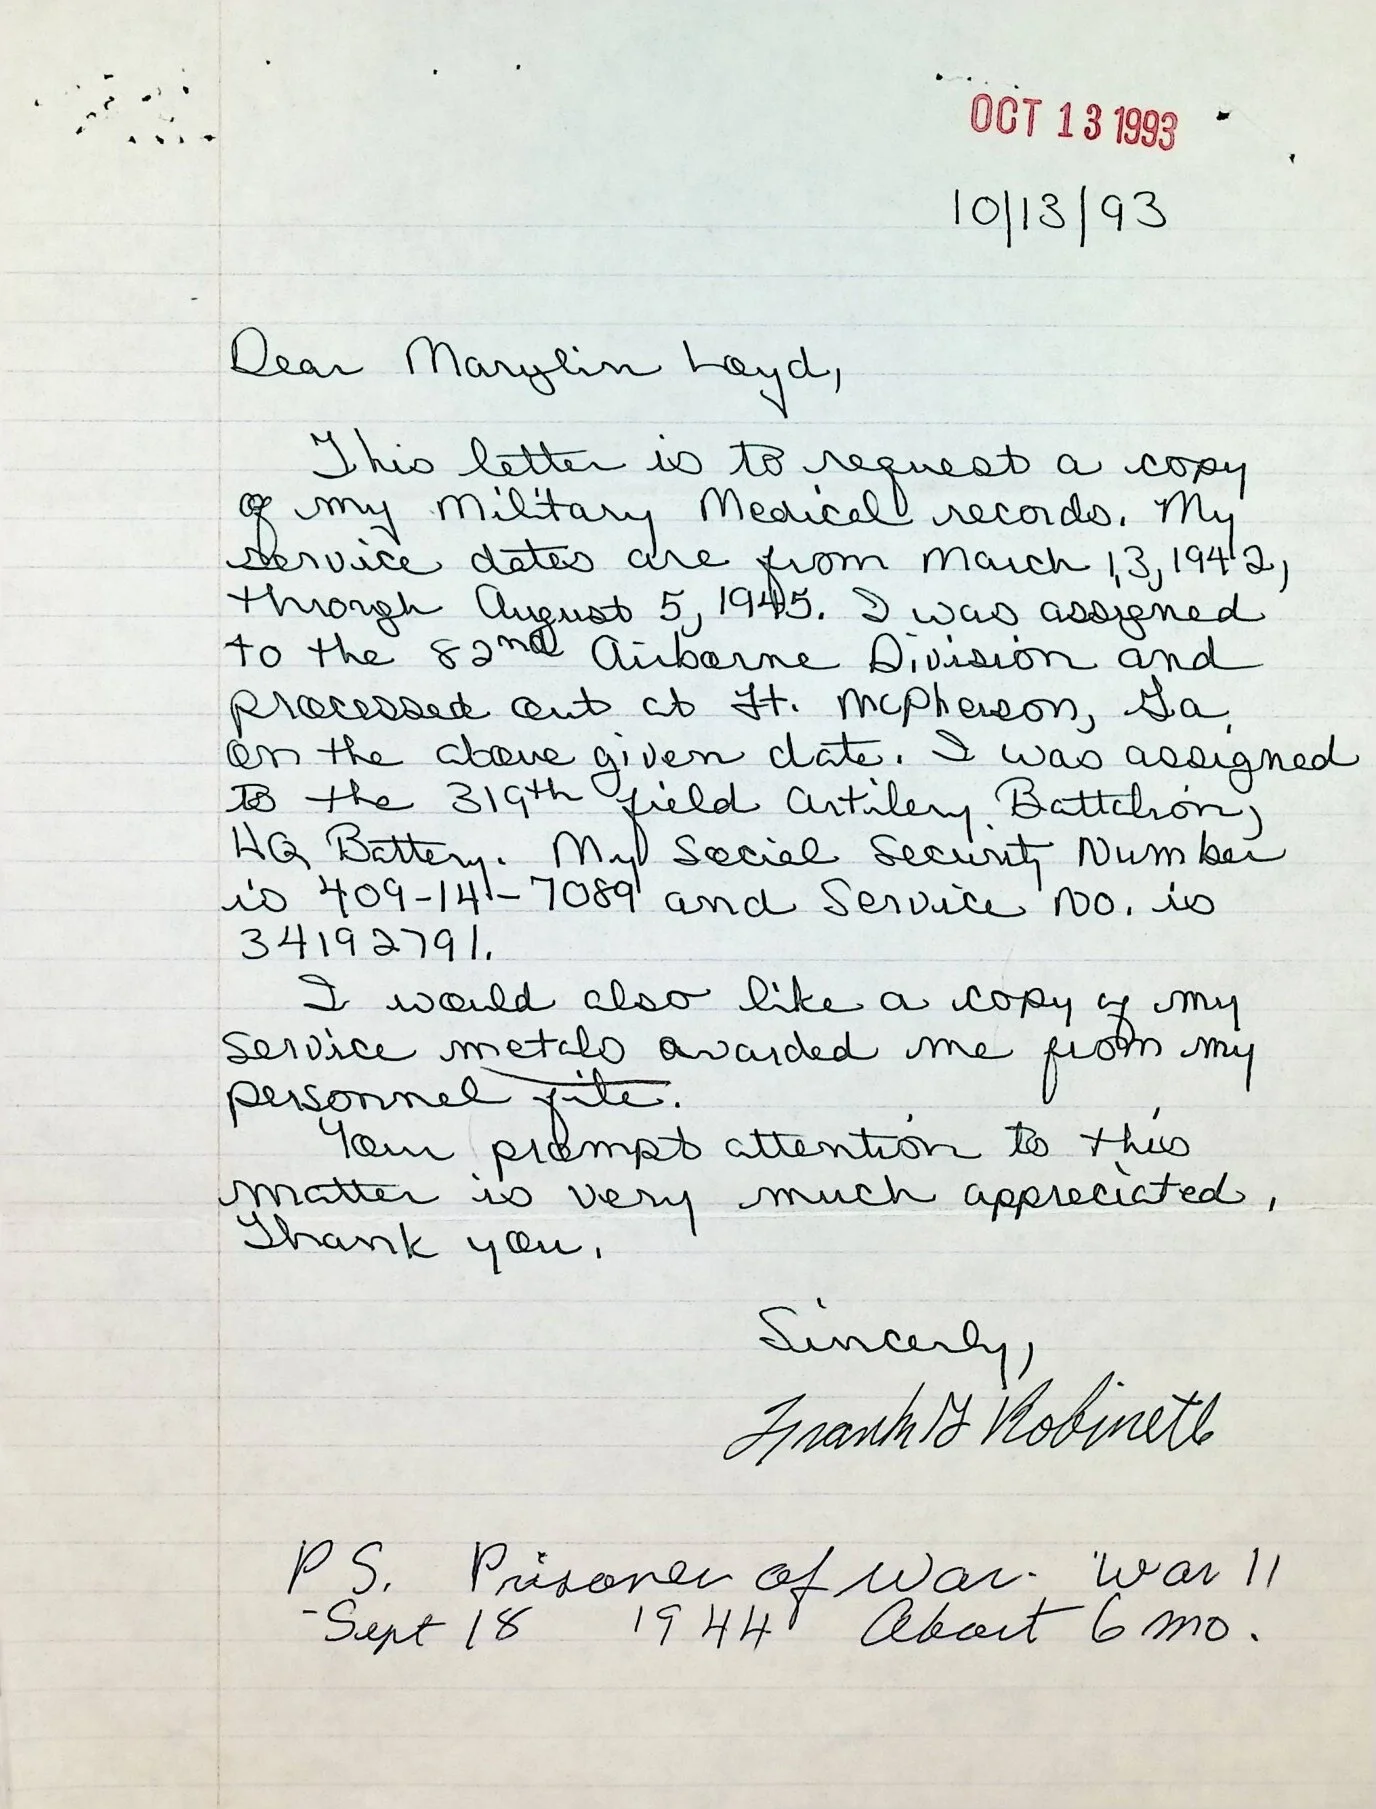 OCT 13 1993
10/13/93
Dear Marylin Loyd,
This letter is to request a copy
of my Military Medical records. My
service dates are from March 13, 1942,
through August 5, 1945. I was assigned
to the 82nd Airborne Division and
processed out at Ft. McPherson, Ga.
on the above given date. I was assigned
to the 319th field Artilery Battalion,
HQ Battery. My Social Security Number
is 409-14-7089 and Service No. is
34192791.
I would also like a copy of my
service metals awarded me from my
personnel file.
Your prompt attention to this
matter is very much appreciated.
Thank you.
Sincerly,
Frank G Robinett
P S. Prisoner of War. War 11
-Sept 18 1944 About 6 mo.